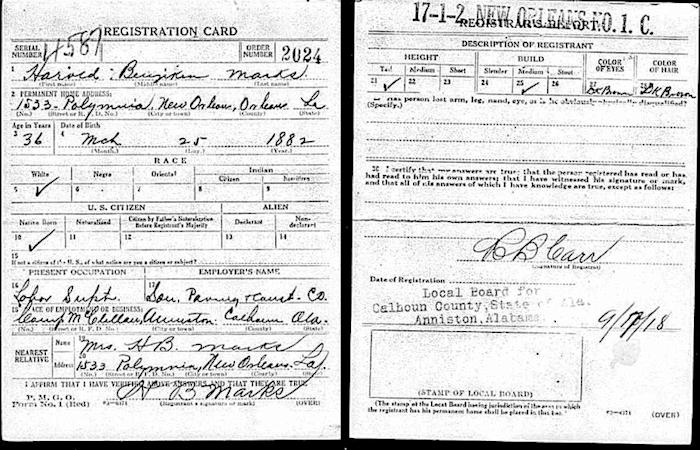 REGISTRATION CARD
SERIAL NUMBER 4587 ORDER NUMBER 2024
1 Harold Benjiken Marks
(First name) (Middle name) (Last name)
2 PERMANENT HOME ADDRESS:
1533 Polymnia, New Orleans, Orleans La
(No.) (Street or R. F. D. No.) (City or town) (County) (State)
Age in Years Date of Birth
3 36 4 Mch 25 1882
(Month.) (Day.) (Year.)
RACE
White Negro Oriental Indian
Citizen Noncitizen
5 ✓ 6 7 8 9
U. S. CITIZEN ALIEN
Native Born Naturalized Citizen by Father's Naturalization Before Registrant's Majority Declarant Non-declarant
10 ✓ 11 12 13 14
15
If not a citizen of the U. S., of what nation are you a citizen or subject?
PRESENT OCCUPATION EMPLOYER'S NAME
16 Labor Supt. 17 Sou. Paving & Const. Co.
18 PLACE OF EMPLOYMENT OR BUSINESS:
Camp McClellan, Anniston Calhoun Ala.
(No.) (Street or R. F. D. No.) (City or town) (County) (State)
NEAREST RELATIVE
Name 19 Mrs. H B. Marks
Address 20 1533 Polymnia, New Orleans. La.
(No.) (Street or R. F. D. No.) (City or town) (County) (State)
I AFFIRM THAT I HAVE VERIFIED ABOVE ANSWERS AND THAT THEY ARE TRUE
P. M. G. O.
Form No. 1 (Red)
H B Marks
(Registrant's signature or mark) (OVER)
17-1-2 NEW ORLEANS NO. 1 C.
REGISTRAR'S REPORT
DESCRIPTION OF REGISTRANT
HEIGHT BUILD COLOR OF EYES COLOR OF HAIR
Tall Medium Short Slender Medium Stout
21 ✓ 22 23 24 25 ✓ 26 27 DK Brown 28 DK Brown
29 Has person lost arm, leg, hand, eye, or is he obviously physically disqualified?
(Specify.)
30 I certify that my answers are true; that the person registered has read or has
had read to him his own answers; that I have witnessed his signature or mark,
and that all of his answers of which I have knowledge are true, except as follows:
B B Carr
(Signature of Registrar)
Date of Registration
9/17/18
Local Board for
Calhoun County, State of Ala.
Anniston, Alabama.
(STAMP OF LOCAL BOARD)
(The stamp of the Local Board having jurisdiction of the area in which
the registrant has his permanent home shall be placed in this box.)
(OVER)